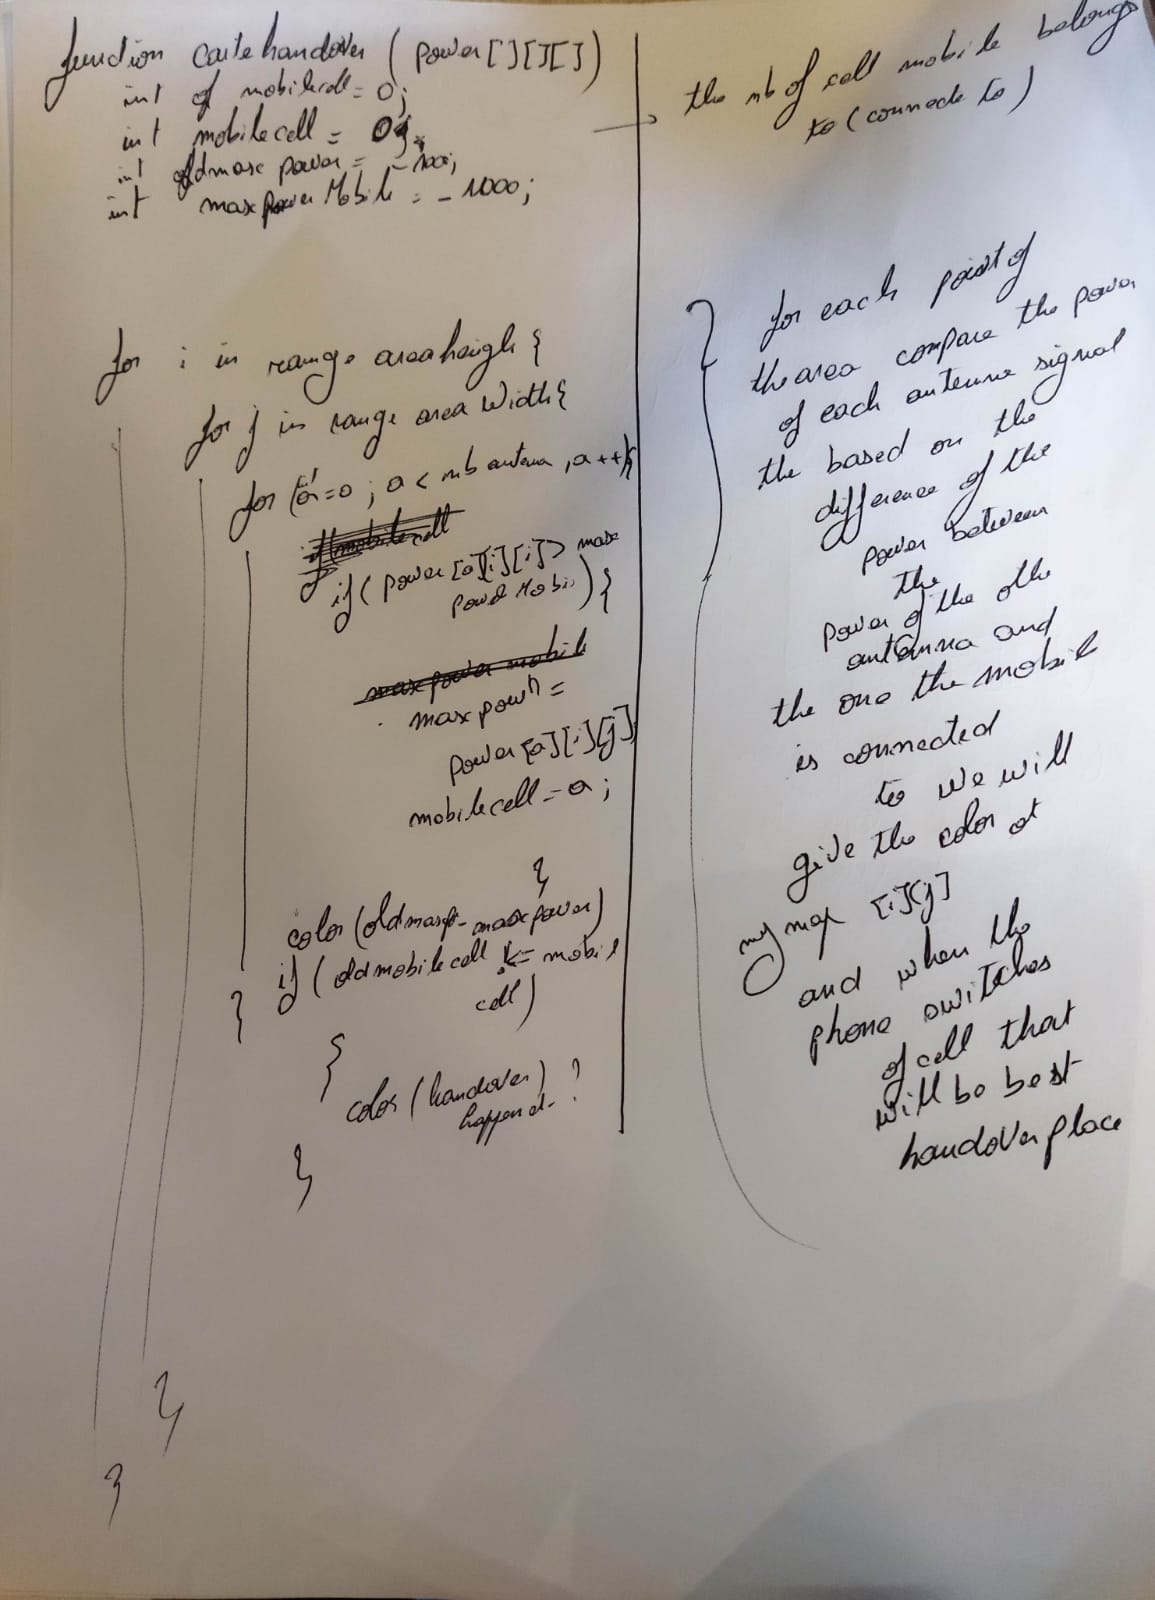 function carte handover ( power[][][] )
int of mobilecell = 0;
int mobilecell = 0;
int oldmaxpower = -1000;
int maxpowerMobile = -1000;
for i in range areaheigh {
for j in range area width {
for ( a=0 ; a < nb antena , a++ ) {
if ( power [a][i][j] > max
power Mobil ) {
max power mobile
max pow =
power [a][i][j]
mobilecell = a ;
}
color (oldmaxp - maxpower)
if ( oldmobilecell != mobil
cell )
}
{
color (handover)
happened ?
}
}
}
the nb of cell mobile belongs
to ( connecte to )
} for each point of
the area compare the power
of each antenne signal
the based on the
difference of the
power between
the
power of the othe
antenna and
the one the mobile
is connected
to we will
give the color ot
my map [i][j]
and when the
phone switches
of cell that
will be best
handover place